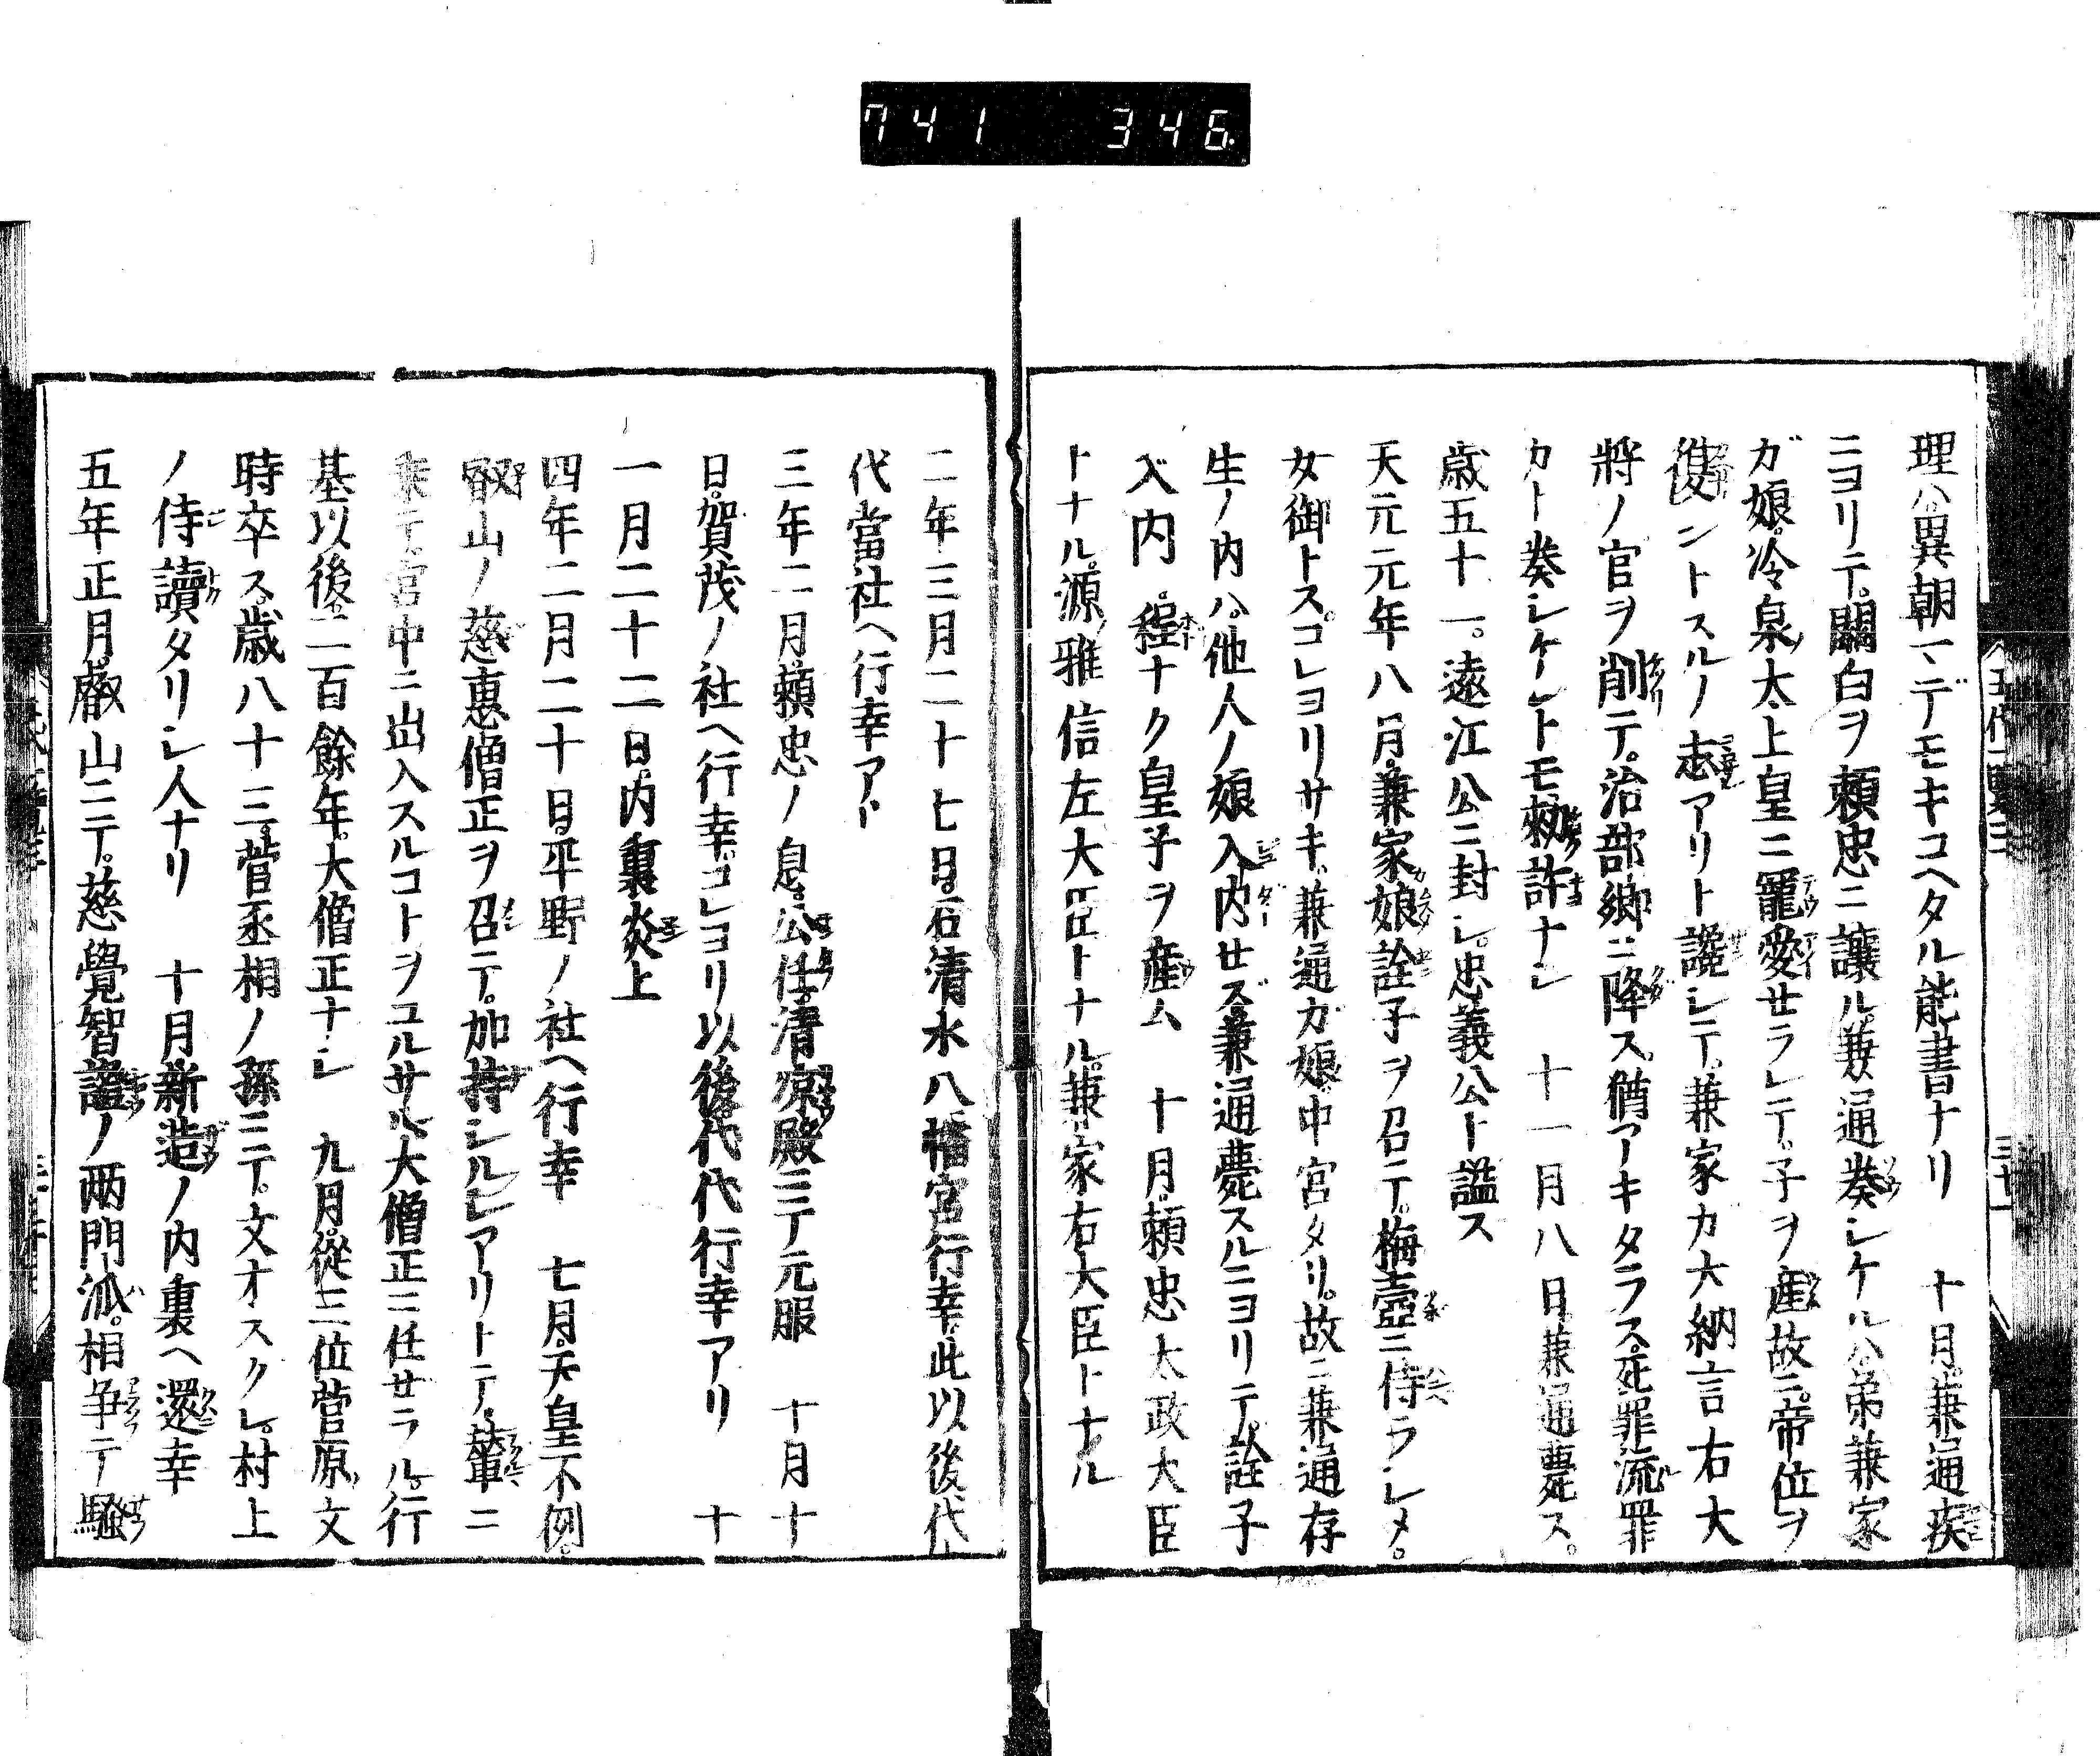 741 346
理ハ異朝マデモキコヘタル能書ナリ 十月兼通疾
ニヨリテ。關白ヲ頼忠ニ讓ル。兼通奏シケルハ。弟兼家
ガ娘。冷泉太上皇ニ寵愛セラレテ。子ヲ産故ニ。帝位ヲ
復ントスルノ志アリト讒シテ。兼家カ大納言右大
將ノ官ヲ削テ。治部卿ニ降ス。猶アキタラス。死罪流罪
カト奏シケレトモ勅許ナシ 十一月八日兼通薨ス。
歳五十一。遠江公ニ封シ。忠義公ト諡ス
天元元年八月。兼家娘詮子ヲ召テ。梅壺ニ侍ラシメ。
女御トス。コレヨリサキ。兼通ガ娘。中宮タリ。故ニ兼通存
生ノ内ハ。他人ノ娘入内セズ。兼通薨スルニヨリテ。詮子
入内。程ナク皇子ヲ産ム 十月。頼忠太政大臣
トナル。源雅信左大臣トナル。兼家右大臣トナル
二年三月二十七日。石清水八幡宮行幸。此以後代
代當社ヘ行幸アリ
三年二月頼忠ノ息。公任。清凉殿ニテ元服 十月十
日。賀茂ノ社ヘ行幸。コレヨリ以後。代代行幸アリ 十
一月二十二日。内裏炎上
四年二月二十日。平野ノ社ヘ行幸 七月。天皇不例。
叡山ノ慈惠僧正ヲ召テ。加持シルシアリトテ。輦ニ
乘テ。宮中ニ出入スルコトヲユルサル。大僧正ニ任セラル。行
基以後。二百餘年。大僧正ナシ 九月。從三位菅原文
時卒ス。歳八十三。菅丞相ノ孫ニテ。文才スクレ。村上
ノ侍讀タリシ人ナリ 十月新造ノ内裏ヘ還幸
五年正月。叡山ニテ。慈覺智證ノ兩門派。相争テ騒